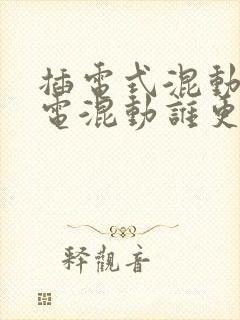 插電式混動
電混動誰更
释觀音